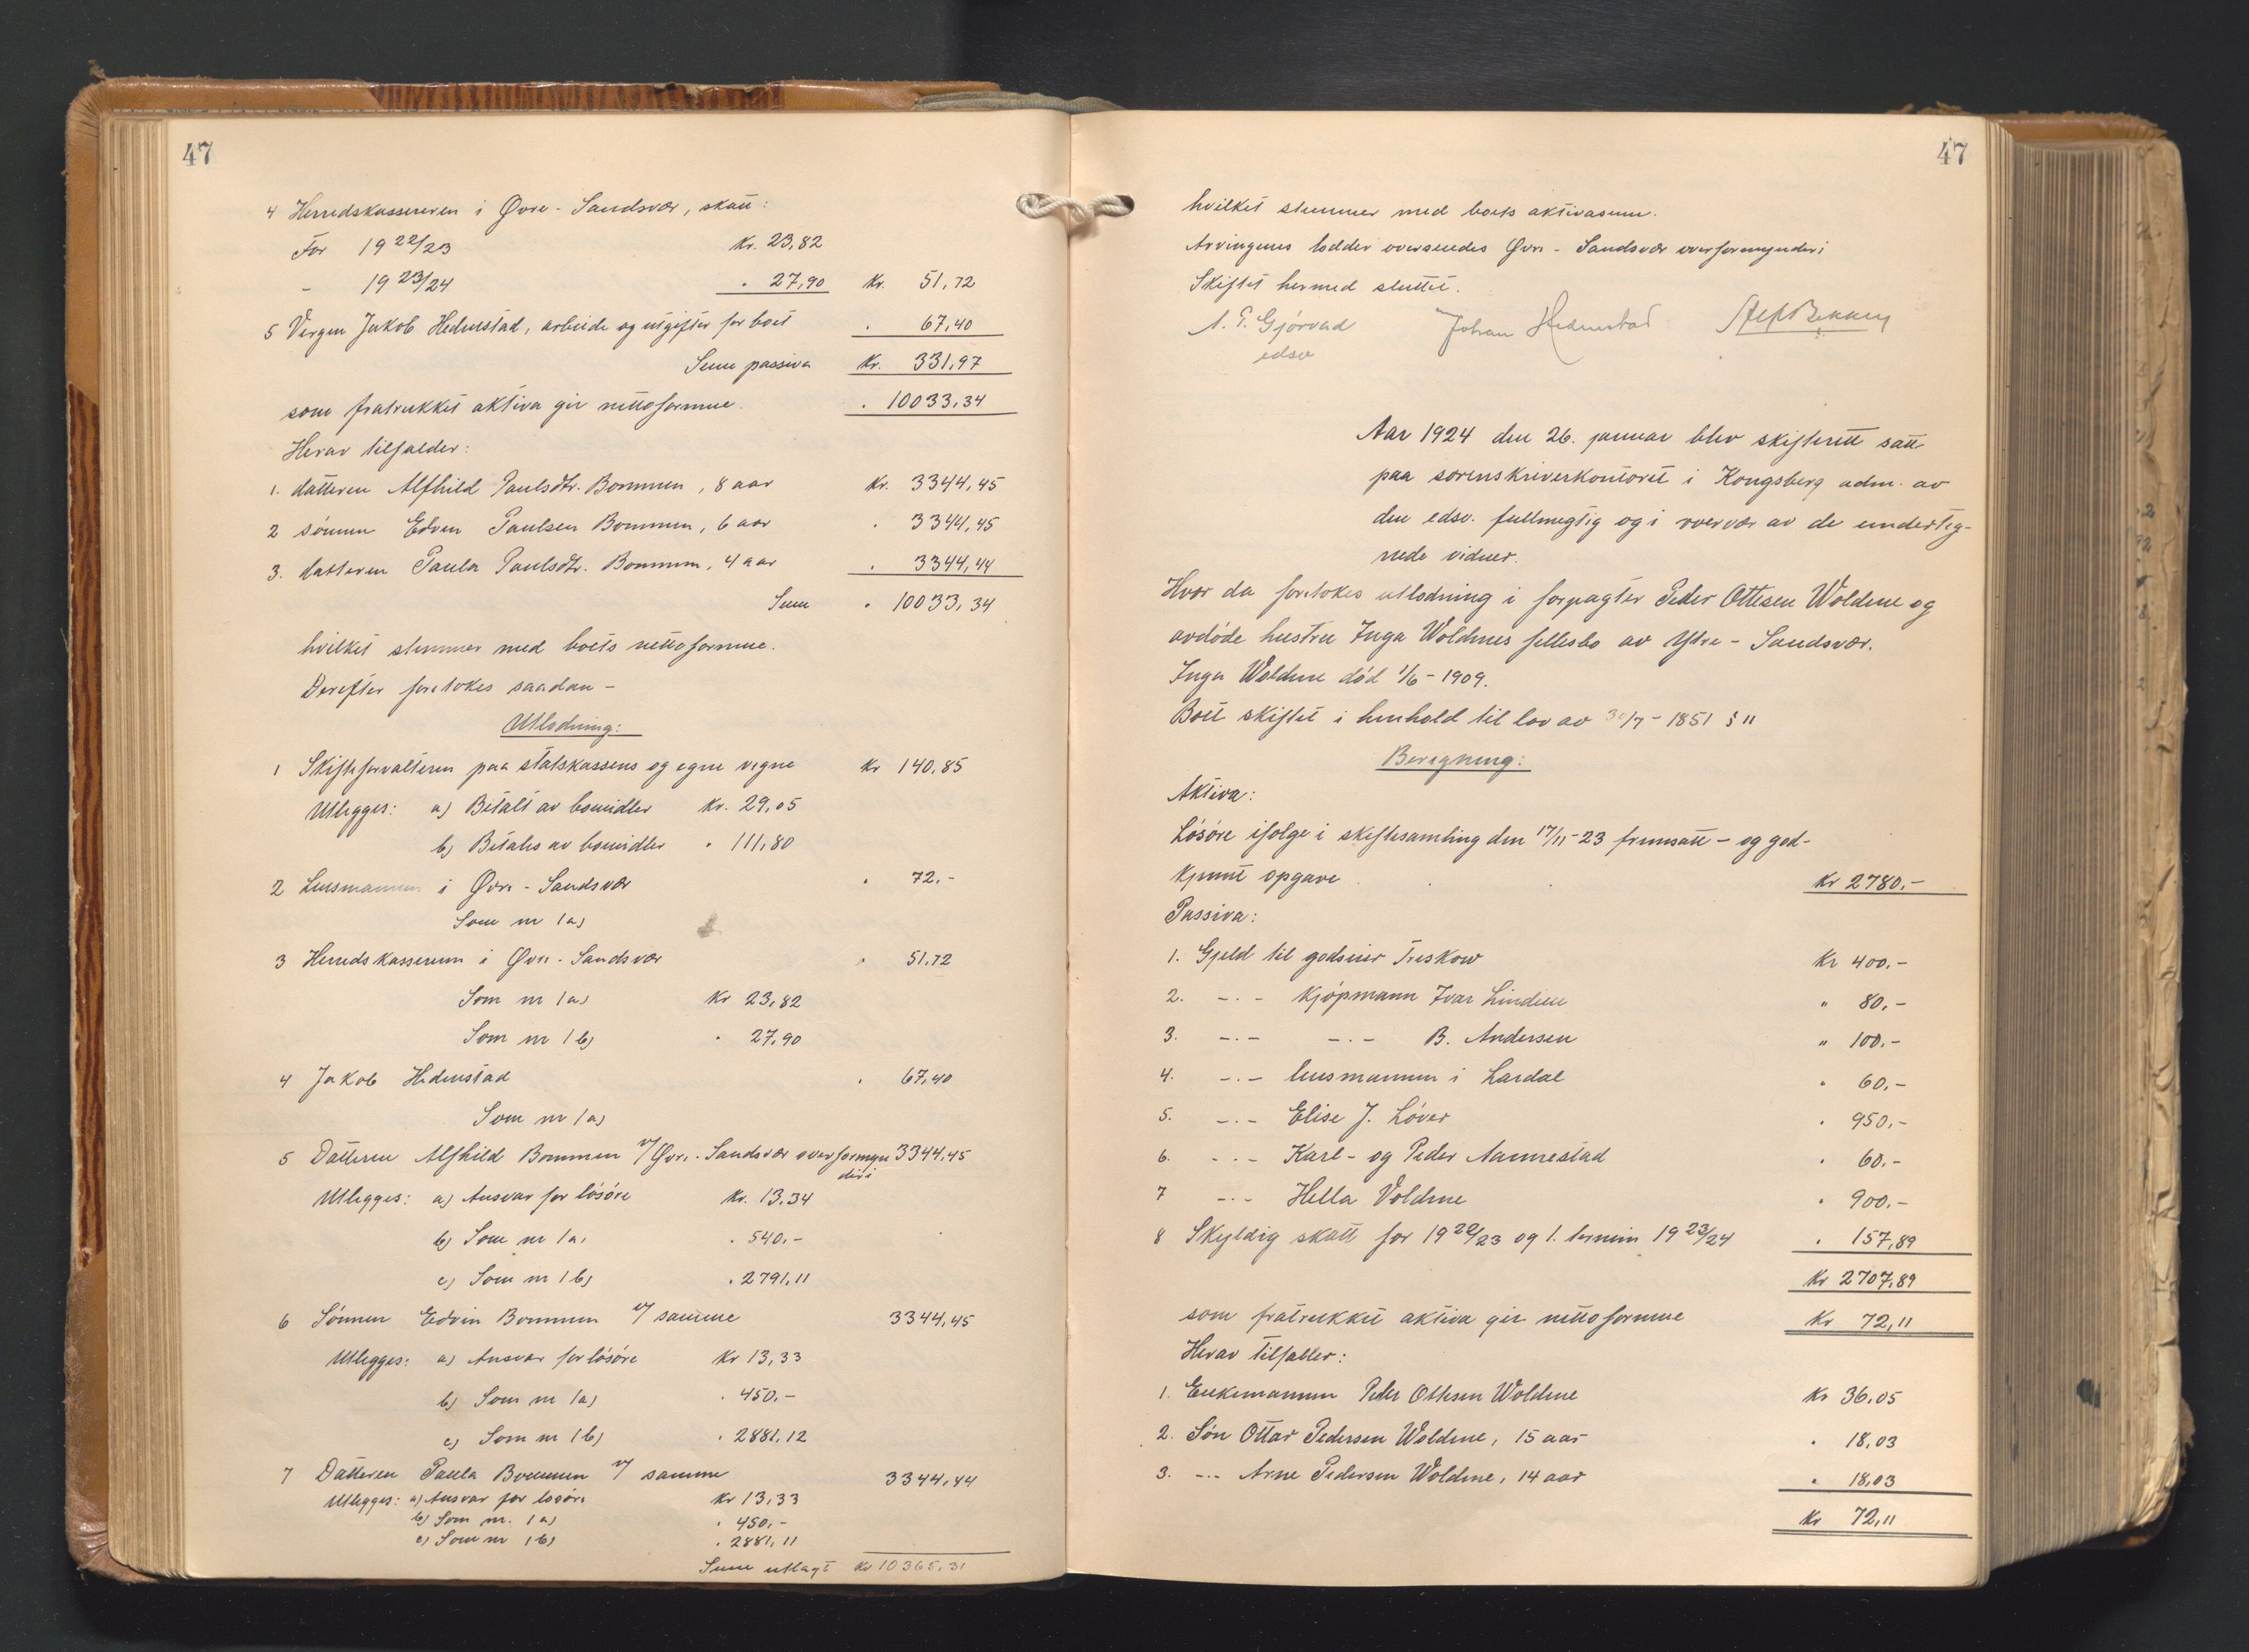 47
4 Herredskassereren i Øvre-Sandsvær, skatt:
For 19 22/23 Kr. 23,82
- 19 23/24 " 27,90 Kr. 51,72
5 Vergen Jakob Hedenstad, arbeide og utgifter for boet " 67,40
Sum passiva Kr. 331,97
som fratrukket aktiva gir nettoformue. " 10033,34
Herav tilfalder:
1. datteren Alfhild Paulsdtr. Bommen, 8 aar Kr. 3344,45
2 sønnen Edvin Paulsen Bommen, 6 aar " 3344,45
3. datteren Paula Paulsdtr. Bommen, 4 aar " 3344,44
Sum " 10033,34
hvilket stemmer med boets nettoformue.
Derefter foretokes saadan -
Utlodning:
1 Skifteforvalteren paa statskassens og egne vegne Kr 140,85
Utlegges: a) Betalt av bomidler Kr. 29,05
b) Betales av bomidler " 111,80
2 Lensmannen i Øvre-Sandsvær " 72,-
Som nr 1a)
3 Herredskassereren i Øvre-Sandsvær " 51,72
Som nr 1a) Kr 23,82
Som nr 1b) " 27,90
4 Jakob Hedenstad " 67,40
Som nr 1a)
5 Datteren Alfhild Bommen v/ Øvre-Sandsvær overformyn 3344,45
deri
Utlegges: a) Ansvar for løsøre Kr. 13,34
b) Som nr 1a) " 540,-
c) Som nr 1b) " 2791,11
6 Sønnen Edvin Bommen v/ samme 3344,45
Utlegges: a) Ansvar for løsøre Kr 13,33
b) Som nr 1a) " 450,-
c) Som nr 1b) " 2881,12
7 Datteren Paula Bommen v/ samme 3344,44
Utlegges: a) Ansvar for løsøre Kr 13,33
b) Som nr. 1a) " 450,-
c) Som nr 1b) " 2881,11
Sum utlagt Kr 10365,31
47
hvilket stemmer med boets aktivasum.
Arvingenes lodder oversendes Øvre-Sandsvær overformynderi
Skiftet hermed sluttet.
A. T. Gjörvad Johan Hedenstad
edsv
Aar 1924 den 26. januar blev skifterett satt
paa sorenskriverkontoret i Kongsberg adm. av
den edsv. fullmegtig og i overvær av de underteg-
nede vidner.
Hvor da foretokes utlodning i forpagter Peder Ottesen Woldene og
avdøde hustru Inga Woldenes fellesbo av Ytre-Sandsvær.
Inga Woldene død 1/6-1909.
Boet skiftet i henhold til lov av 30/7-1851 § 11
Beregning:
Aktiva:
Løsøre ifølge i skiftesamling den 17/11-23 fremsatt- og god-
kjennt opgave Kr 2780,-
Passiva:
1. Gjeld til godseier Treskow Kr 400,-
2. -.- Kjøpmann Ivar Lindem " 80,-
3. -.- -.- B. Andersen " 100,-
4. -.- lensmannen i Lardal " 60,-
5. -.- Elise J. Løver " 950,-
6. -.- Karl- og Peder Aannestad " 60,-
7 -.- Hella Voldene " 900,-
8 Skyldig skatt for 19 22/23 og 1. termin 19 23/24 " 157,89
Kr 2707,89
som fratrukket aktiva gir nettoformue Kr 72,11
Herav tilfaller:
1. Enkemannen Peder Ottesen Woldene Kr 36,05
2. Søn Ottar Pedersen Woldene, 15 aar " 18,03
3. -.- Arne Pedersen Woldene, 14 aar " 18,03
Kr 72,11